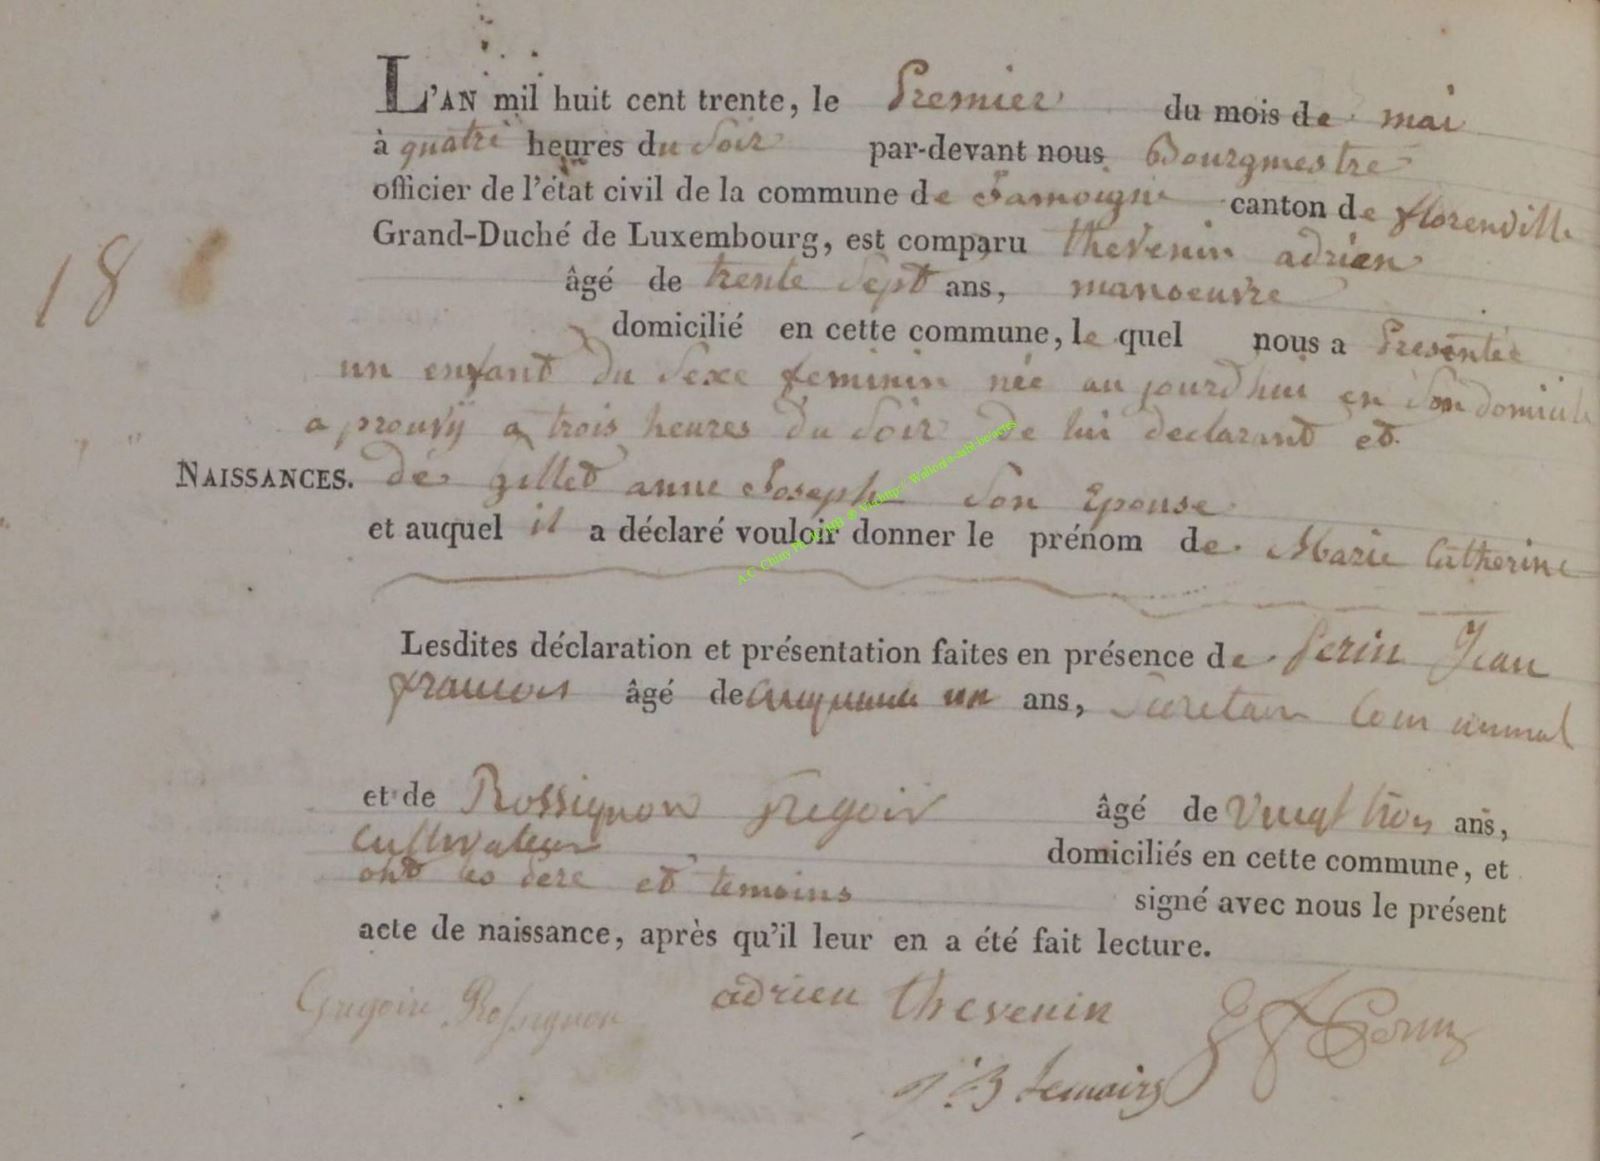 L'AN mil huit cent trente, le Premier du mois de mai
à quatre heures du Soir par-devant nous Bourgmestre
officier de l'état civil de la commune de Jamoigne canton de florenville
Grand-Duché de Luxembourg, est comparu thevenin adrien
18
âgé de trente Sept ans, manoeuvre
domicilié en cette commune, le quel nous a Presentée
un enfant du Sexe feminin née au jourdhui en Son domicile
a prouvÿ a trois heures du Soir de lui declarant et
NAISSANCES. de gillet anne Joseph Son Epouse
et auquel il a déclaré vouloir donner le prénom de Marie Catherine
Lesdites déclaration et présentation faites en présence de Perin Jean
francois âgé de cinquante un ans, Secretair Communal
et de Rossignon gregoir âgé de Vingt trois ans,
cultivateur domiciliés en cette commune, et
ont les dere et temoins signé avec nous le présent
acte de naissance, après qu'il leur en a été fait lecture.
Gregoire Rossignon adrien thevenin JF Perin
J B Lemaire